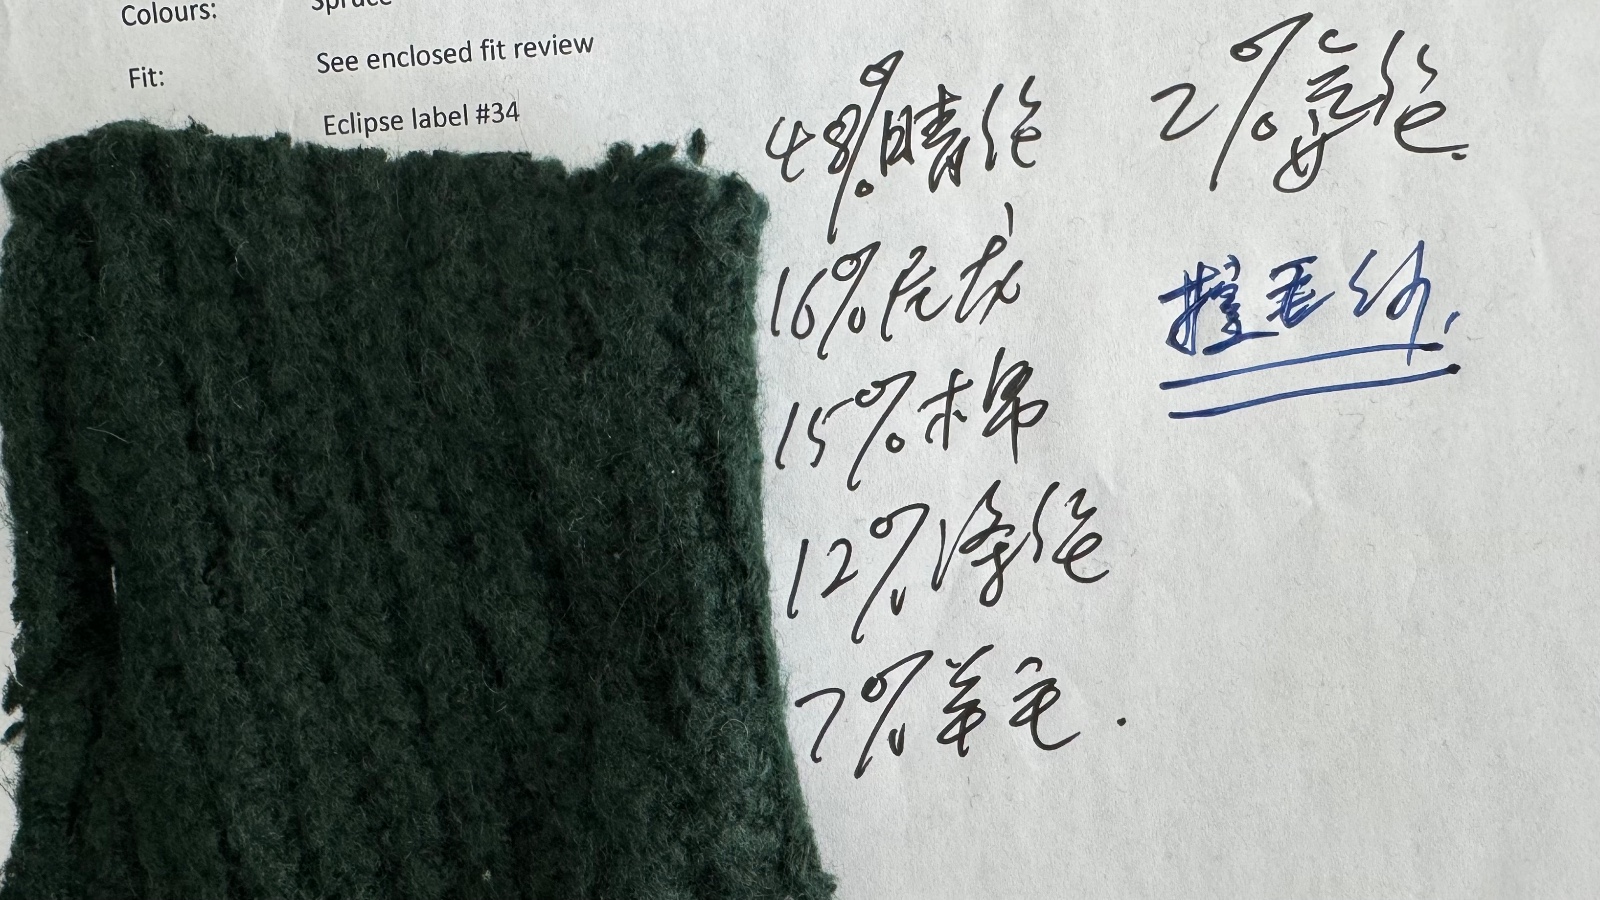 Colours:
Spruce
Fit:
See enclosed fit review
Eclipse label #34
48%晴纶
16%尼龙
15%棉
12%涤纶
7%羊毛.
2%氨纶.
毛纱.